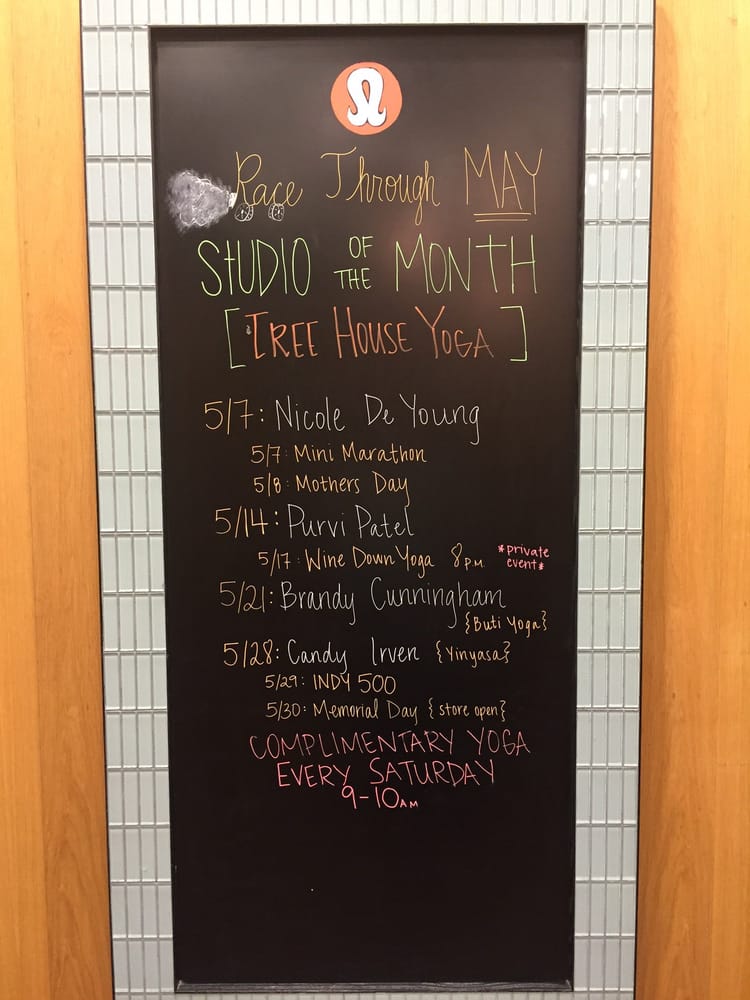 Race Through MAY
STUDIO OF THE MONTH
[TREE HOUSE YOGA]
5/7: Nicole De Young
5/7: Mini Marathon
5/8: Mothers Day
5/14: Purvi Patel
5/17: Wine Down Yoga 8pm *private event*
5/21: Brandy Cunningham
{Buti Yoga}
5/28: Candy Irven {Yinyasa}
5/29: INDY 500
5/30: Memorial Day {store open}
COMPLIMENTARY YOGA
EVERY SATURDAY
9-10AM